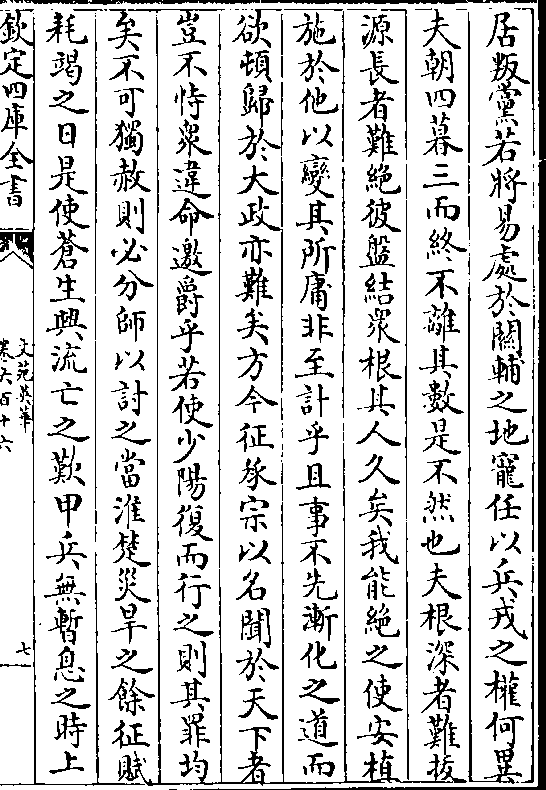 居叛黨若將易處於關輔之地寵任以兵戎之權何異
夫朝四暮三而終不離其數是不然也夫根深者難拔
源長者難絕彼盤結衆根其人久矣我能絕之使安植
施於他以變其所庸非至計乎且事不先漸化之道而
欲頓歸於大政亦難矣方今征承宗以名聞於天下者
豈不恃衆違命邀爵乎若使少陽復而行之則其罪均
矣不可獨赦則必分師以討之當淮楚災旱之餘征賦
耗竭之日是使蒼生興流亡之歎甲兵無暫息之時上
欽定四庫全書
文苑英華
卷六百十六
七